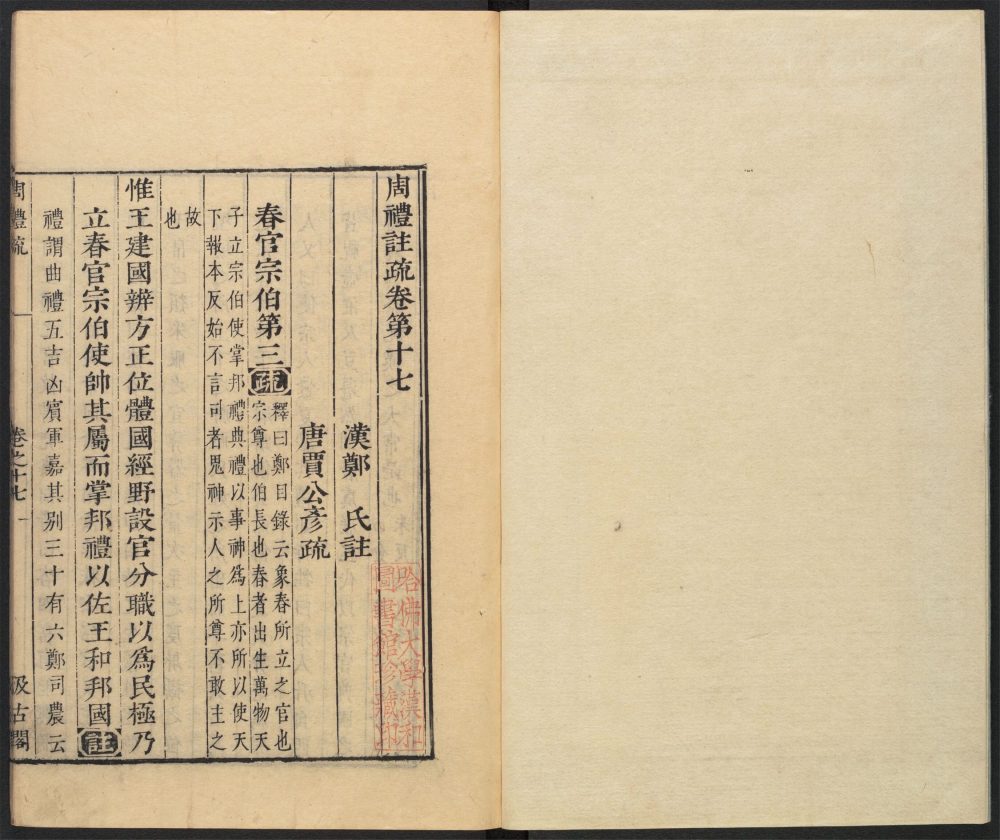 周禮註疏卷第十七
漢鄭　氏註
唐賈公彥疏
哈佛大學漢和
圖書館珍藏印
春官宗伯第三疏釋曰鄭目錄云象春所立之官也
宗尊也伯長也春者出生萬物天
子立宗伯使掌邦禮典禮以事神爲上亦所以使天
下報本反始不言司者鬼神示人之所尊不敢主之
故
也
惟王建國辨方正位體國經野設官分職以爲民極乃
立春官宗伯使帥其屬而掌邦禮以佐王和邦國註
禮謂曲禮五吉凶賓軍嘉其別三十有六鄭司農云
周禮疏　卷之十七　一　汲古閣